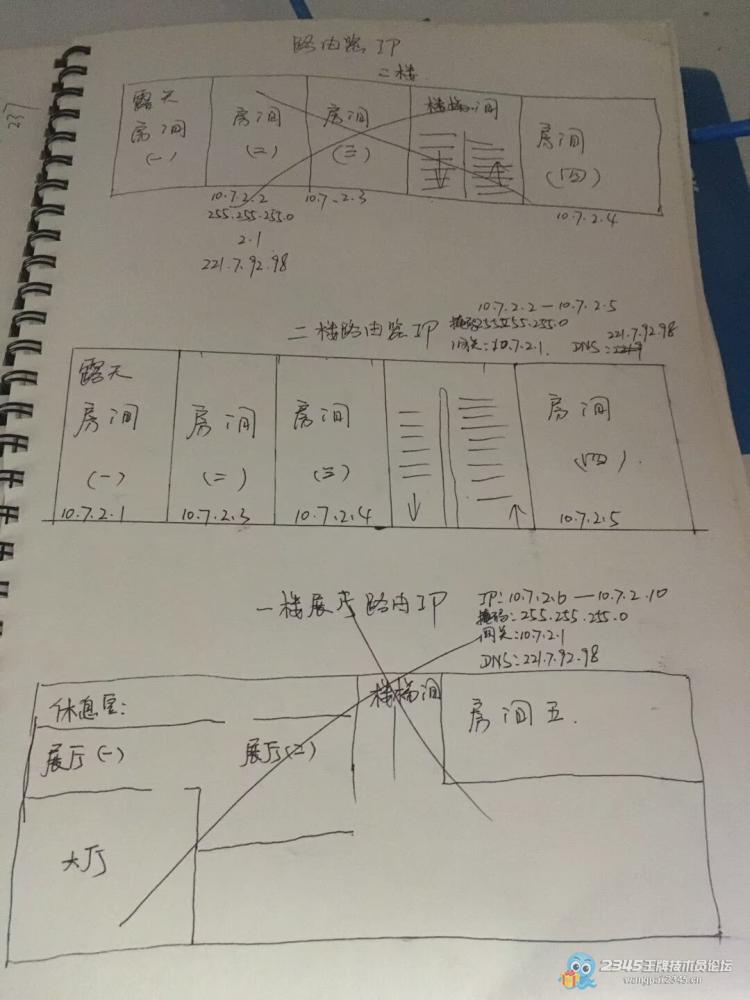 237
路由路 IP
二楼
露天
房间
(一)
房间
(二)
房间
(三)
楼梯间
房间
(四)
10.7.2.2
255.255.255.0
2.1
221.7.92.98
10.7.2.3
10.7.2.4
二楼路由路IP
10.7.2.2—10.7.2.5
掩码255.255.255.0
网关:10.7.2.1.
DNS:
221.7.92.98
露天
房间
(一)
10.7.2.1
房间
(二)
10.7.2.3
房间
(三)
10.7.2.4
房间
(四).
10.7.2.5
一楼展厅路由IP
IP:10.7.2.6—10.7.2.10
掩码:255.255.255.0
网关:10.7.2.1
DNS:221.7.92.98
休息室:
展厅(一)
展厅(二)
楼梯间
房间五.
大厅
2345王牌技术员论坛
wangpai2345.cn